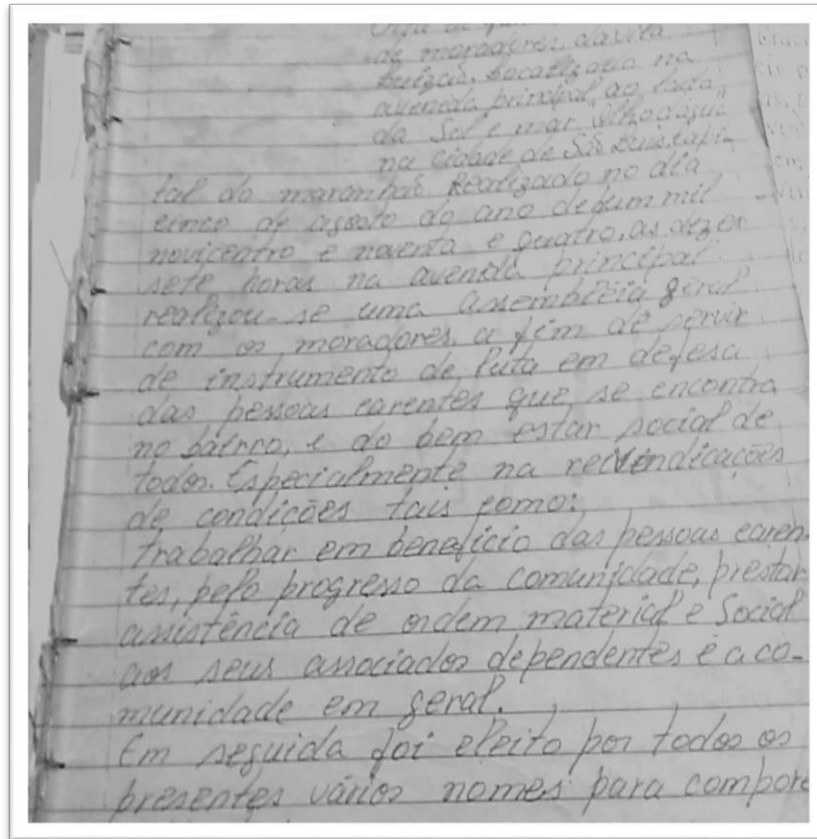 de moradores da vila
Luizão. Localizado na
avenida principal ao lado
do Sol e mar olho dágua
na cidade de São Luis, capi-
tal do maranhão Realizado no dia
cinco de agosto do ano de hum mil
novicentro e noventa e quatro, as dezes
sete horas na avenida principal
realizou-se uma assembléia geral
com os moradores, a fim de servir
de instrumento de luta em defesa
das pessoas carentes que se encontra
no bairro, e do bem estar social de
todos. Especialmente na reivindicações
de condições tais como:
trabalhar em benefício das pessoas caren-
tes, pelo progresso da comunidade, prestar
assistência de ordem material e Social
aos seus associados dependentes e a co-
munidade em geral.
Em seguida foi eleito por todos os
presentes vários nomes para compore